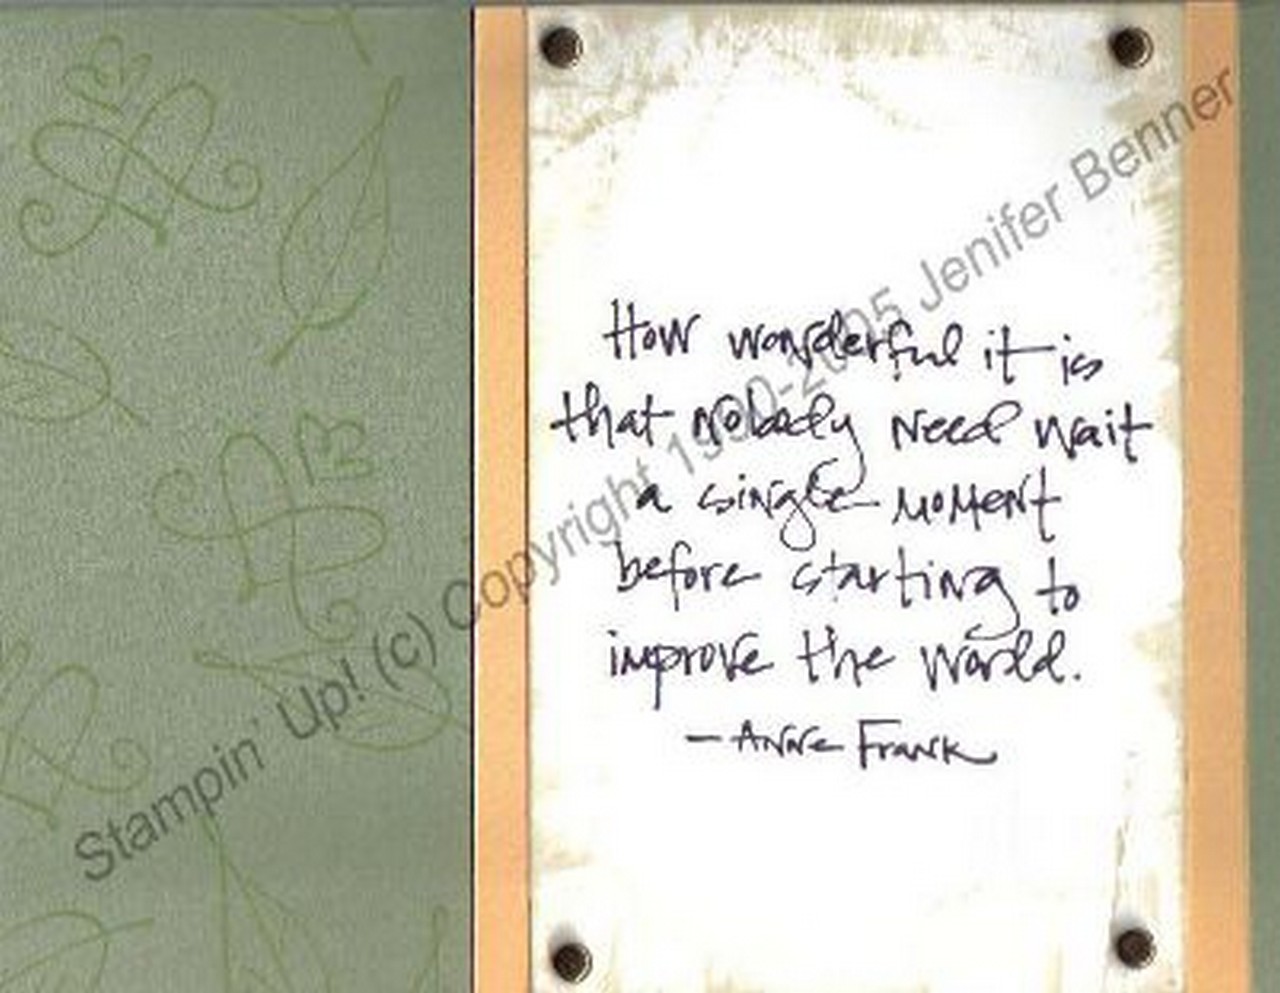 How wonderful it is
that nobody need wait
a single moment
before starting to
improve the world.
— Anne Frank
Stampin' Up! (c) Copyright 1990-2005 Jenifer Benner